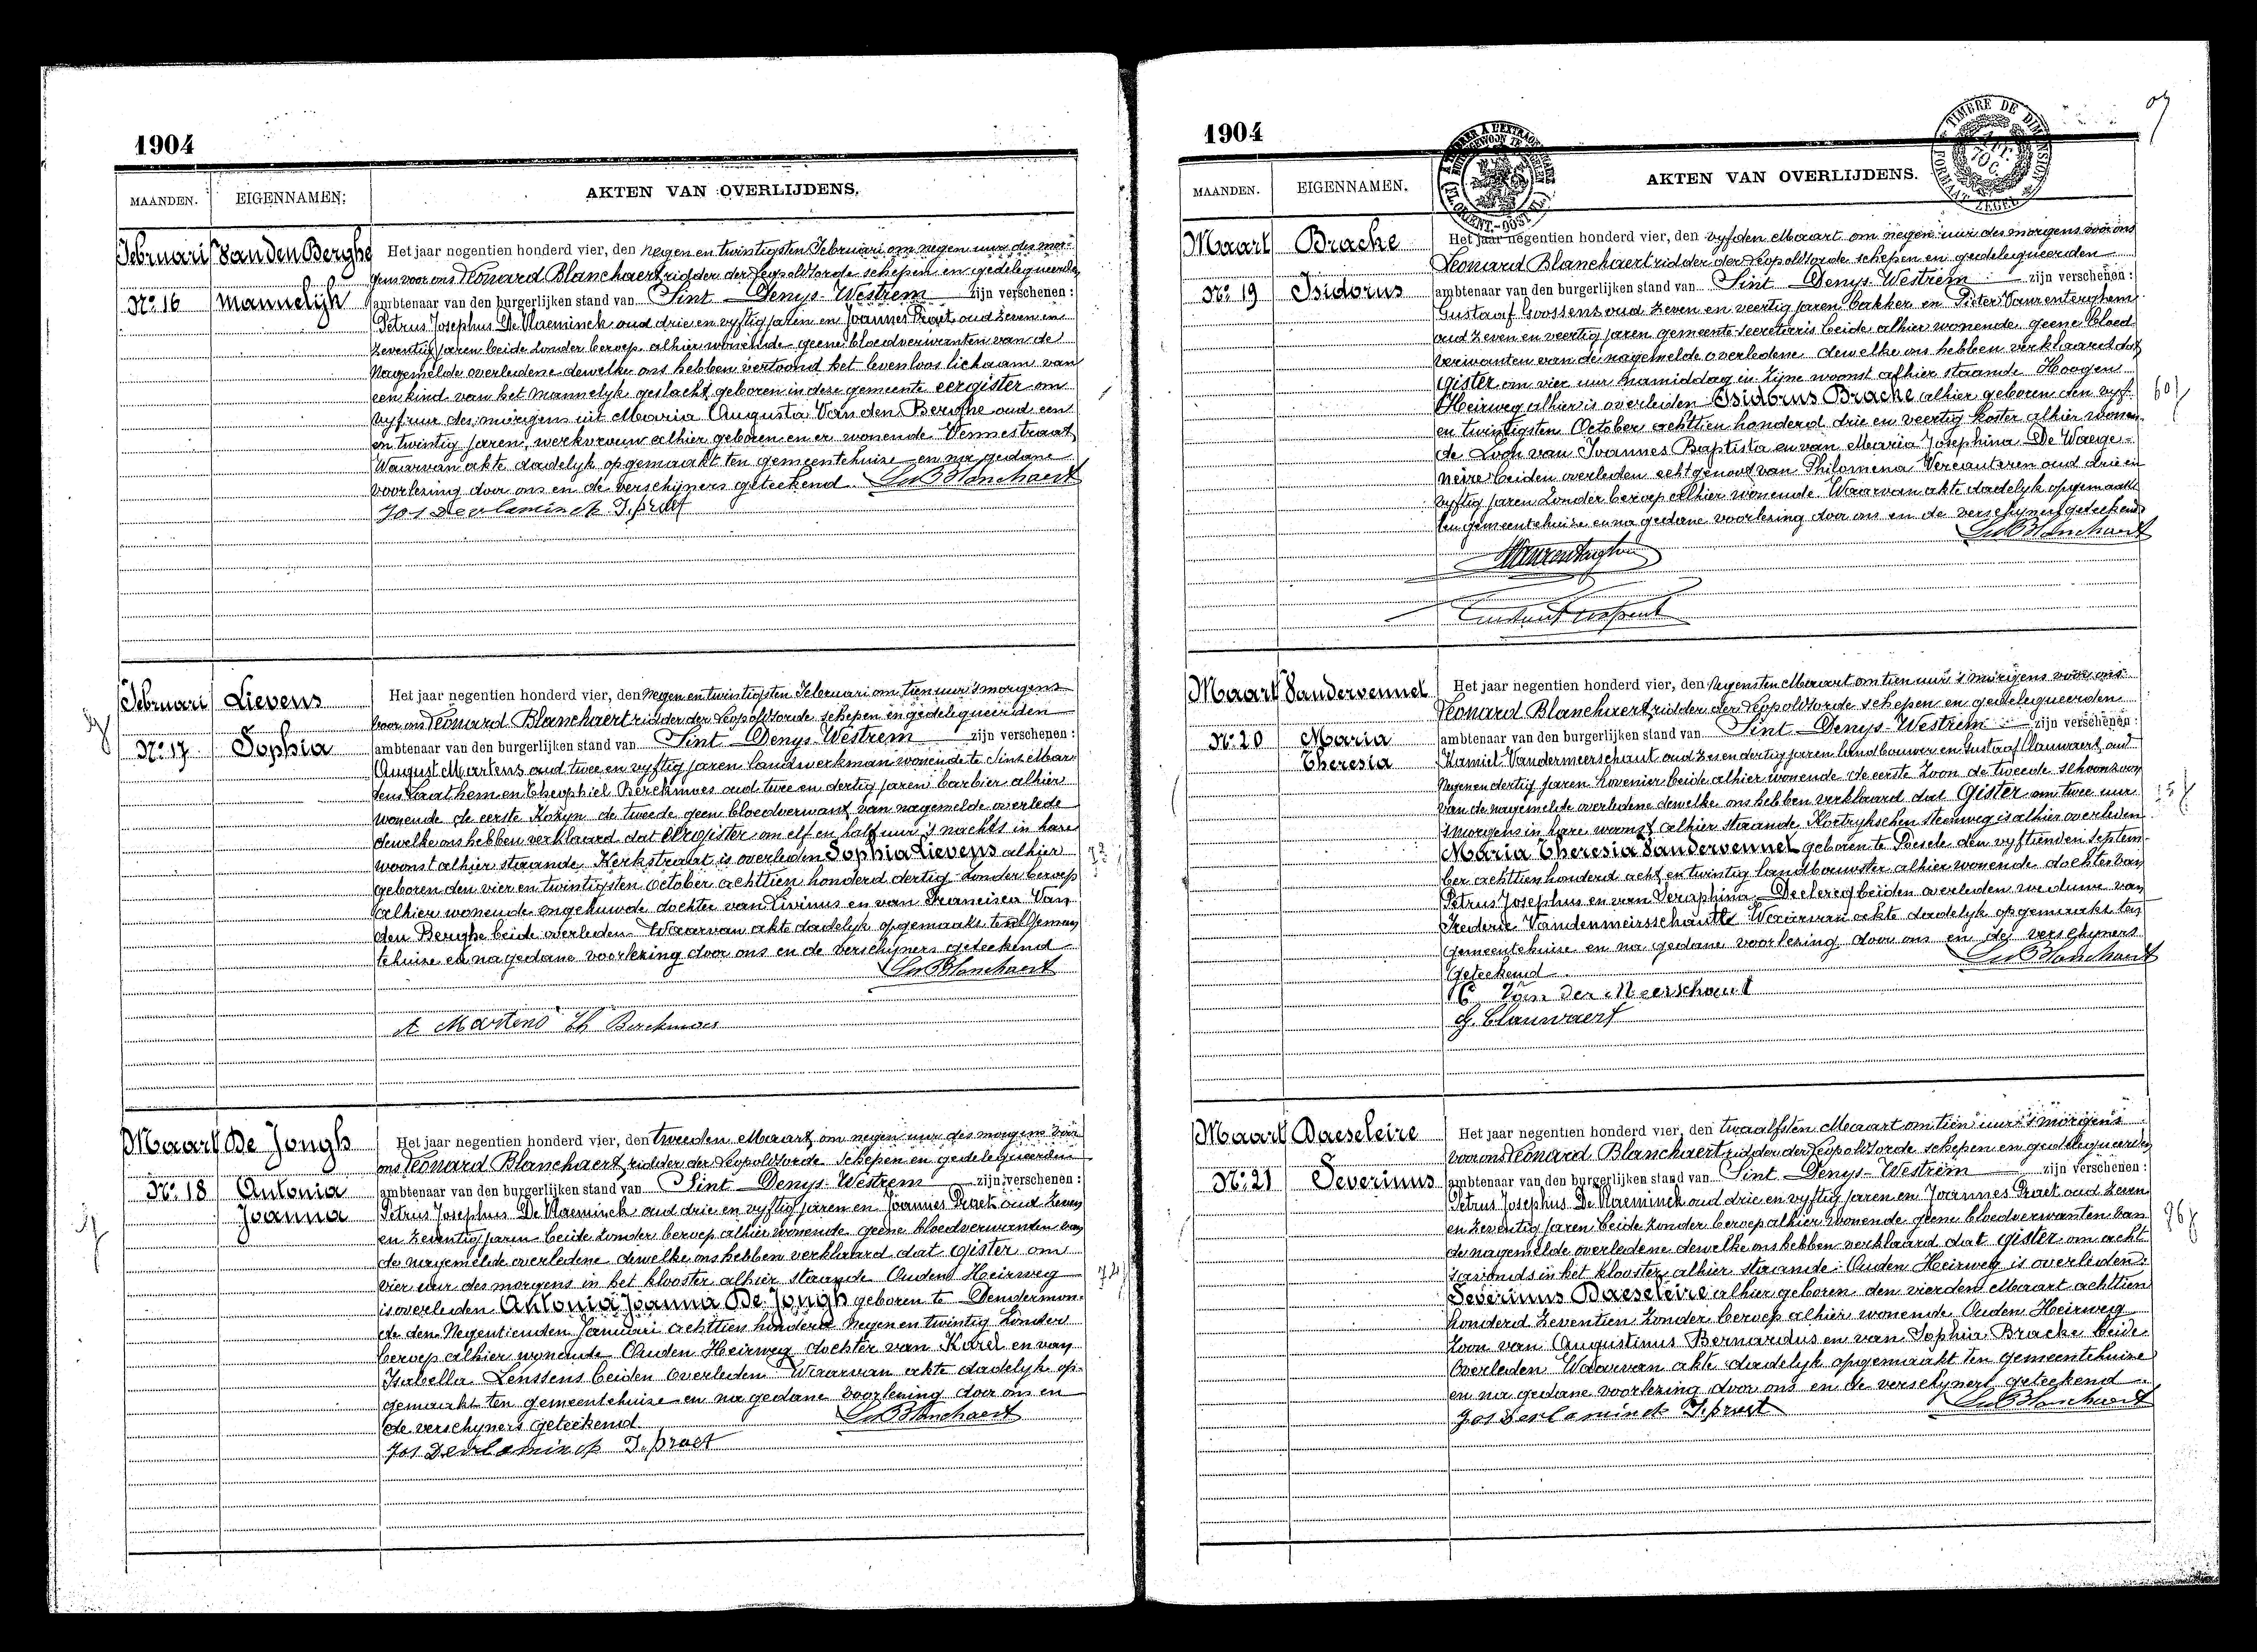 1904
MAANDEN. EIGENNAMEN. AKTEN VAN OVERLIJDENS.
Februari Van den Berghe
No. 16 Mannelijk
Het jaar negentien honderd vier, den negen en twintigsten Februari om negen uur des mor-
gens voor ons Leonard Blanchaert ridder der Leopoldorde schepen en gedelegueerden
ambtenaar van den burgerlijken stand van Sint Denys-Westrem zijn verschenen :
Petrus Josephus De Vlaeminck oud drie en vyftig jaren en Joannes Praet oud zeven en
zeventig jaren beide zonder beroep alhier wonende geene bloedverwanten van de
nagemelde overledene dewelke ons hebben vertoond het levenloos lichaam van
een kind van het mannelyk geslacht geboren in deze gemeente eergister om
vyf uur des morgens uit Maria Augusta Van den Berghe oud een
en twintig jaren, werkvrouw alhier geboren en er wonende Vennestraat
Waarvan akte dadelyk opgemaakt ten gemeentehuize en na gedane
voorlezing door ons en de verschijners geteekend. Leo Blanchaert
Jos Devlaminck J. praet
Februari Lievens
No. 17 Sophia
Het jaar negentien honderd vier, den negen en twintigsten Februari om tien uur 's morgens
voor ons Leonard Blanchaert ridder der Leopoldorde schepen en gedelegueerden
ambtenaar van den burgerlijken stand van Sint Denys-Westrem zijn verschenen :
August Martens oud twee en vyftig jaren landwerkman wonende te Sint Mar-
tens Laathem en Theophiel Berckmoes oud twee en dertig jaren barbier alhier
wonende de eerste Kozyn de tweede geen bloedverwant van nagemelde overlede
dewelke ons hebben verklaard dat eergister om elf en half uur 's nachts in hare
woonst alhier staande Kerkstraat is overleden Sophia Lievens alhier
geboren den vier en twintigsten October achttien honderd dertig zonder beroep
alhier wonende ongehuwde dochter van Livinus en van Francisca Van
den Berghe beide overleden Waarvan akte dadelyk opgemaakt ten gemeen
tehuize en na gedane voorlezing door ons en de verschyners geteekend
Leo Blanchaert
A Martens Th Berckmoes
Maart De Jongh
No. 18 Antonia
Joanna
Het jaar negentien honderd vier, den tweeden Maart om negen uur des morgens voor
ons Leonard Blanchaert ridder der Leopoldorde schepen en gedelegueerden
ambtenaar van den burgerlijken stand van Sint Denys-Westrem zijn verschenen :
Petrus Josephus De Vlaeminck oud drie en vyftig jaren en Joannes Praet oud zeven
en zeventig jaren beide zonder beroep alhier wonende geene bloedverwanten van
de nagemelde overledene dewelke ons hebben verklaard dat gister om
vier uur des morgens in het klooster alhier staande Ouden Heirweg
is overleden Antonia Joanna De Jongh geboren te Dendermon-
de den Negentienden Januari achttien honderd Negen en twintig Zonder
beroep alhier wonende Ouden Heirweg dochter van Karel en van
Isabella Lenssens beiden overleden Waarvan akte dadelyk op-
gemaakt ten gemeentehuize en na gedane voorlezing door ons en
de verschyners geteekend Leo Blanchaert
Jos Devlaminck J. praet
1904
MAANDEN. EIGENNAMEN. AKTEN VAN OVERLIJDENS.
TIMBRE DE DIMENSION
Maart Bracke
No. 19 Isidorus
Het jaar negentien honderd vier, den vyfden Maart om negen uur des morgens voor ons
Leonard Blanchaert ridder der Leopoldorde schepen en gedelegueerden
ambtenaar van den burgerlijken stand van Sint Denys-Westrem zijn verschenen :
Gustaaf Goossens oud zeven en veertig jaren bakker en Pieter Vaurenterghem
oud zeven en veertig jaren gemeente-secretaris beide alhier wonende geene bloed
verwanten van de nagemelde overledene dewelke ons hebben verklaard dat
gister om vier uur namiddag in zijne woonst alhier staande Hoogen
Heirweg alhier is overleden Isidorus Bracke alhier geboren den vyf
en twintigsten October achttien honderd drie en veertig koster alhier wonen-
de Zoon van Joannes Baptista en van Maria Josephina De Waege-
neire beiden overleden echtgenoot van Philomena Vercauteren oud drie en
vyftig jaren zonder beroep alhier wonende. Waarvan akte dadelyk opgemaakt
ten gemeentehuize en na gedane voorlezing door ons en de verschyners geteekend
Leo Blanchaert
Maart Vandervennet
No. 20 Maria
Theresia
Het jaar negentien honderd vier, den negensten Maart om tien uur 's morgens voor ons
Leonard Blanchaert ridder der Leopoldorde schepen en gedelegueerden
ambtenaar van den burgerlijken stand van Sint Denys-Westrem zijn verschenen :
Kamiel Vandermeerschaut oud zes en dertig jaren landbouwer en Gustaaf Clauwaert oud
negen en dertig jaren hovenier beide alhier wonende de eerste zoon de tweede schoonzoon
van de nagemelde overledene dewelke ons hebben verklaard dat gister om twee uur
's morgens in hare woonst alhier staande Kortrykschen steenweg is alhier overleden
Maria Theresia Vandervennet geboren te Poesele den vyftienden Septem-
ber achttien honderd acht en twintig landbouwster alhier wonende dochter van
Petrus Josephus en van Seraphina Declercq beiden overleden weduwe van
Frederic Vandenmeirsschautte Waarvan akte dadelyk opgemaakt ten
gemeentehuize en na gedane voorlezing door ons en de verschyners
geteekend Leo Blanchaert
C Van Der Meerschaut
G. Clauwaert
Maart Daeseleire
No. 21 Severinus
Het jaar negentien honderd vier, den twaalfsten Maart om tien uur 's morgens
voor ons Leonard Blanchaert ridder der Leopoldorde schepen en gedelegueerden
ambtenaar van den burgerlijken stand van Sint Denys-Westrem zijn verschenen :
Petrus Josephus De Vlaeminck oud drie en vyftig jaren en Joannes Praet oud zeven
en zeventig jaren beide zonder beroep alhier wonende geene bloedverwanten van
de nagemelde overledene dewelke ons hebben verklaard dat gister om acht
's avonds in het klooster alhier staande Ouden Heirweg is overleden
Severinus Daeseleire alhier geboren den vierden Maart achttien
honderd zeventien zonder beroep alhier wonende Ouden Heirweg
Zoon van Augustinus Bernardus en van Sophia Bracke beide
overleden Waarvan akte dadelyk opgemaakt ten gemeentehuize
en na gedane voorlezing door ons en de verschyners geteekend
Jos Devlaminck J. praet Leo Blanchaert